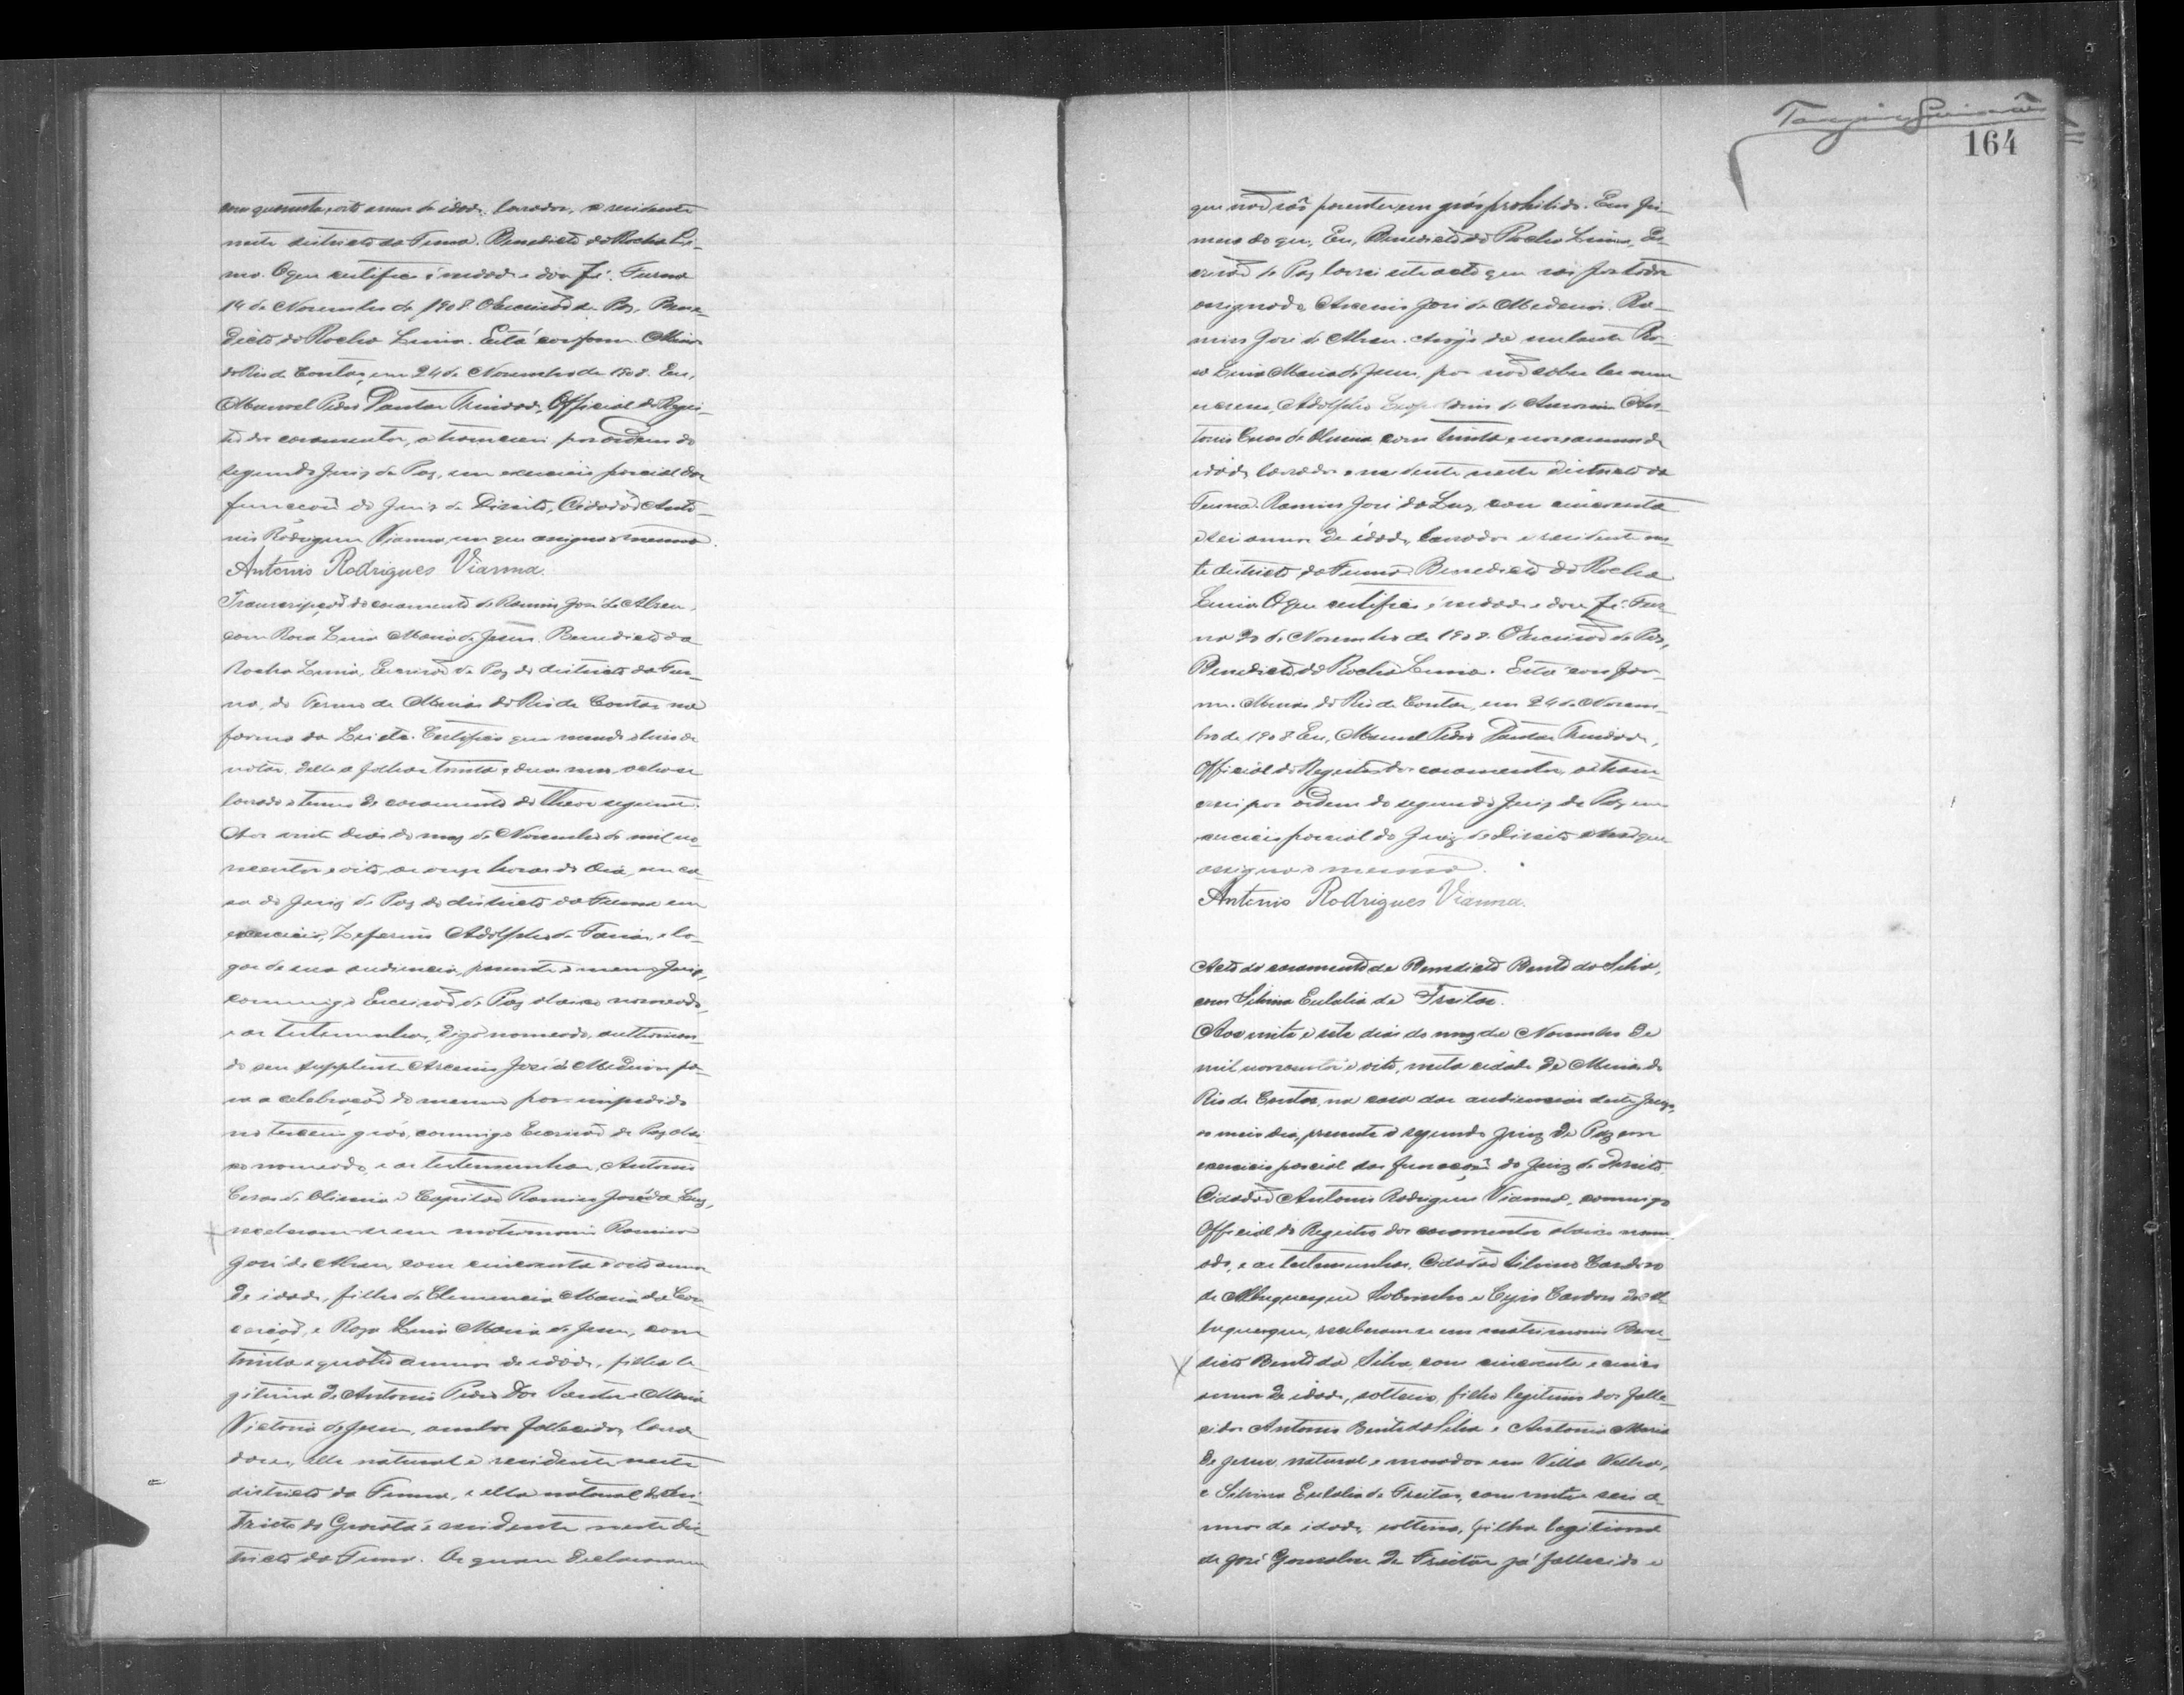 com quarenta e oito annos de idade, lavrador, e residente
neste districto da Furna. Benedicto da Rocha Li-
ma. O que certifico é verdade e dou fé. Furna
14 de Novembro de 1908. O Escrivão de Paz, Bene-
dicto da Rocha Lima. Está conforme. Minas
do Rio de Contas, em 24 de Novembro de 1908. Eu,
Manoel Pedro Dantas Trindade, Official do Regis-
tro dos casamentos, o transcrevi por ordem do
segundo Juiz de Paz, em exercicio parcial das
funcções do Juiz de Direito, Cidadão Anto-
nio Rodrigues Vianna, em que assigna o mesmo.
Antonio Rodrigues Vianna.
Transcripção do casamento de Ramiro José de Abreu,
com Rosa Lima Maria de Jesus. Benedicto da
Rocha Lima, Escrivão de Paz do districto da Fur-
na, do Termo de Minas do Rio de Contas, na
forma da Lei etc. Certifico que vendo o livro de
notas, delle a folhas trinta e duas verso, acha-se
lavrado o termo de casamento do theor seguinte:
Aos vinte dias do mez de Novembro de mil no-
vecentos e oito, as onze horas do dia, em ca-
sa do Juiz de Paz do districto da Furna em
exercicio, Zeferino Adolpho de Faria, e lo-
gar de sua audiencia, presente o mesmo Juiz,
commigo Escrivão de Paz abaixo nomeado,
e as testemunhas, digo nomeado, authorisan-
do seu supplente Arcenio José de Medeiros pa-
ra a celebração do mesmo por impedido
no terceiro gráo, commigo Escrivão de Paz abai-
xo nomeado, e as testemunhas, Antonio
Cesar de Oliveira e Capitão Ramiro José da Luz,
receberam-se em matrimonio Ramiro
José de Abreu, com cincoenta e oito annos
de idade, filho de Clemencia Maria da Con-
ceição, e Rosa Lima Maria de Jesus, com
trinta e quatro annos de idade, filha le-
gitima de Antonio Pedro dos Santos e Maria
Victoria de Jesus, ambos fallecidos, lavra-
dores, elle natural e residente neste
districto da Furna, e ella natural do dis-
tricto do Gravatá e residente neste dis-
tricto da Furna. Os quaes declararam
164
que não são parentes em gráo prohibido. Em fir-
meza do que, Eu, Benedicto da Rocha Lima, Es-
crivão de Paz lavrei este acto que vai por todos
assignado, Arcenio José de Medeiros. Ra-
miro José de Abreu. Arogo da nubente Ro-
sa Lima Maria de Jesus, por não saber ler nem
escrever, Adolpho de Antonio An-
tonio Cesar de Oliveira com trinta e nove annos de
idade, lavrador e residente neste districto da
Furna. Ramiro José da Luz, com cincoenta
e seis annos de idade, lavrador e residente nes-
te districto da Furna. Benedicto da Rocha
Lima. O que certifico é verdade e dou fé. Fur-
na 20 de Novembro de 1908. O Escrivão de Paz,
Benedicto da Rocha Lima. Está confor-
me. Minas do Rio de Contas, em 24 de Novem-
bro de 1908. Eu, Manoel Pedro Dantas Trindade,
Official do Registro dos casamentos, o trans-
crevi por ordem do segundo Juiz de Paz em
exercicio parcial do Juiz de Direito em que
assigna o mesmo.
Antonio Rodrigues Vianna.
Acto do casamento de Benedicto Bento da Silva,
com Silvina Eulalia de Freitas.
Aos vinte e sete dias do mez de Novembro de
mil novecentos e oito, nesta cidade de Minas do
Rio de Contas, na casa das audiencias deste Juizo,
ao meio dia, presente o segundo Juiz de Paz em
exercicio parcial das funcções do Juiz de Direito,
Cidadão Antonio Rodrigues Vianna, commigo
Official do Registro dos casamentos abaixo nome-
ado, e as testemunhas, Cidadão Silvino Cardoso
de Albuquerque Sobrinho e Cyro Cardoso de Al-
buquerque, receberam-se em matrimonio Bene-
dicto Bento da Silva, com cincoenta e cinco
annos de idade, solteiro, filho legitimo dos falle-
cidos Antonio Bento da Silva e Antonia Maria
de Jesus, natural e morador em Villa Velha,
e Silvina Eulalia de Freitas, com vinte e seis a-
nnos de idade, solteira, filha legitima
de José Gonsalves de Freitas já fallecido e